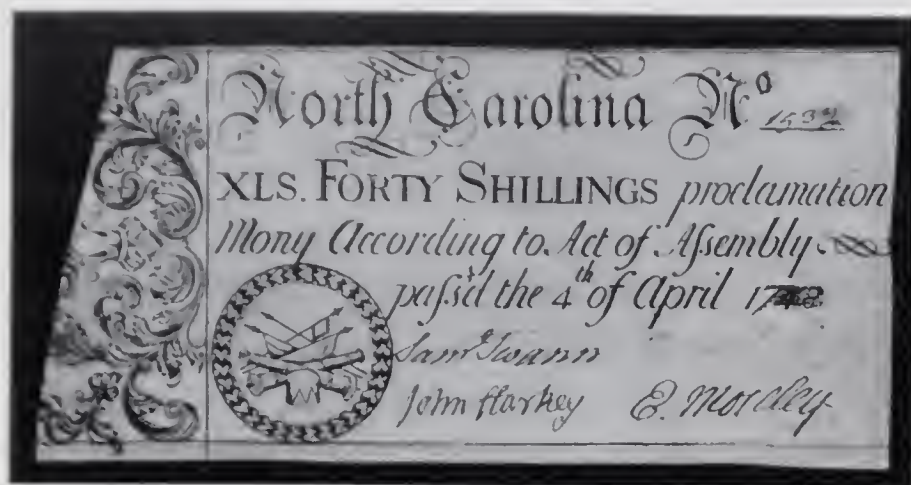 North Carolina No 1532
XLS. FORTY SHILLINGS proclamation
Mony According to Act of Assembly
paſs'd the 4th of April 1748
Saml Swann
John Starkey E. Moseley